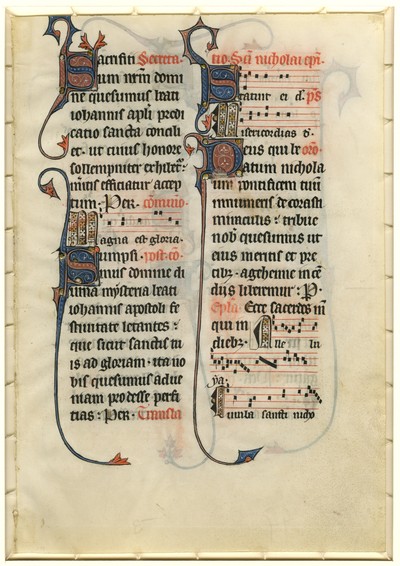 Sacrifiū Secreta
um nr̄m domi
ne quesumus beati
iohannis apl̄i predi
catio sancta concili
et · ut cuius honore
sollempniter exhibet᷑
in tuis efficiatur accep
tum; Per · cōmunio
Magna est gloria ·
Sumpsi · post cō
mus domine di
uina mysteria beati
iohannis apostoli fe
stiuitate letantes :
que sicut sanctis tu
is ad gloriam · ita no
bis quesumus ad ue
niam prodesse perfi
cias : Per · Transla
tio Sc̄i nicholai ep̄i ·
Statuit ei d̄ · p̄s
Misericordias d̄ ·
Deus qui be oro
atum nichola
um pontificem tuū
innumeris decorasti
miraculis · tribue
nob̄ quesumus ut
eius meritis et pre
cibꝫ · a gehenne incē
diis liberemur : P ·
Epl̄a · Ecce sacerdos m̄
qui in Alle lu
diebꝫ ·
ya;
Tumba sancti nicho